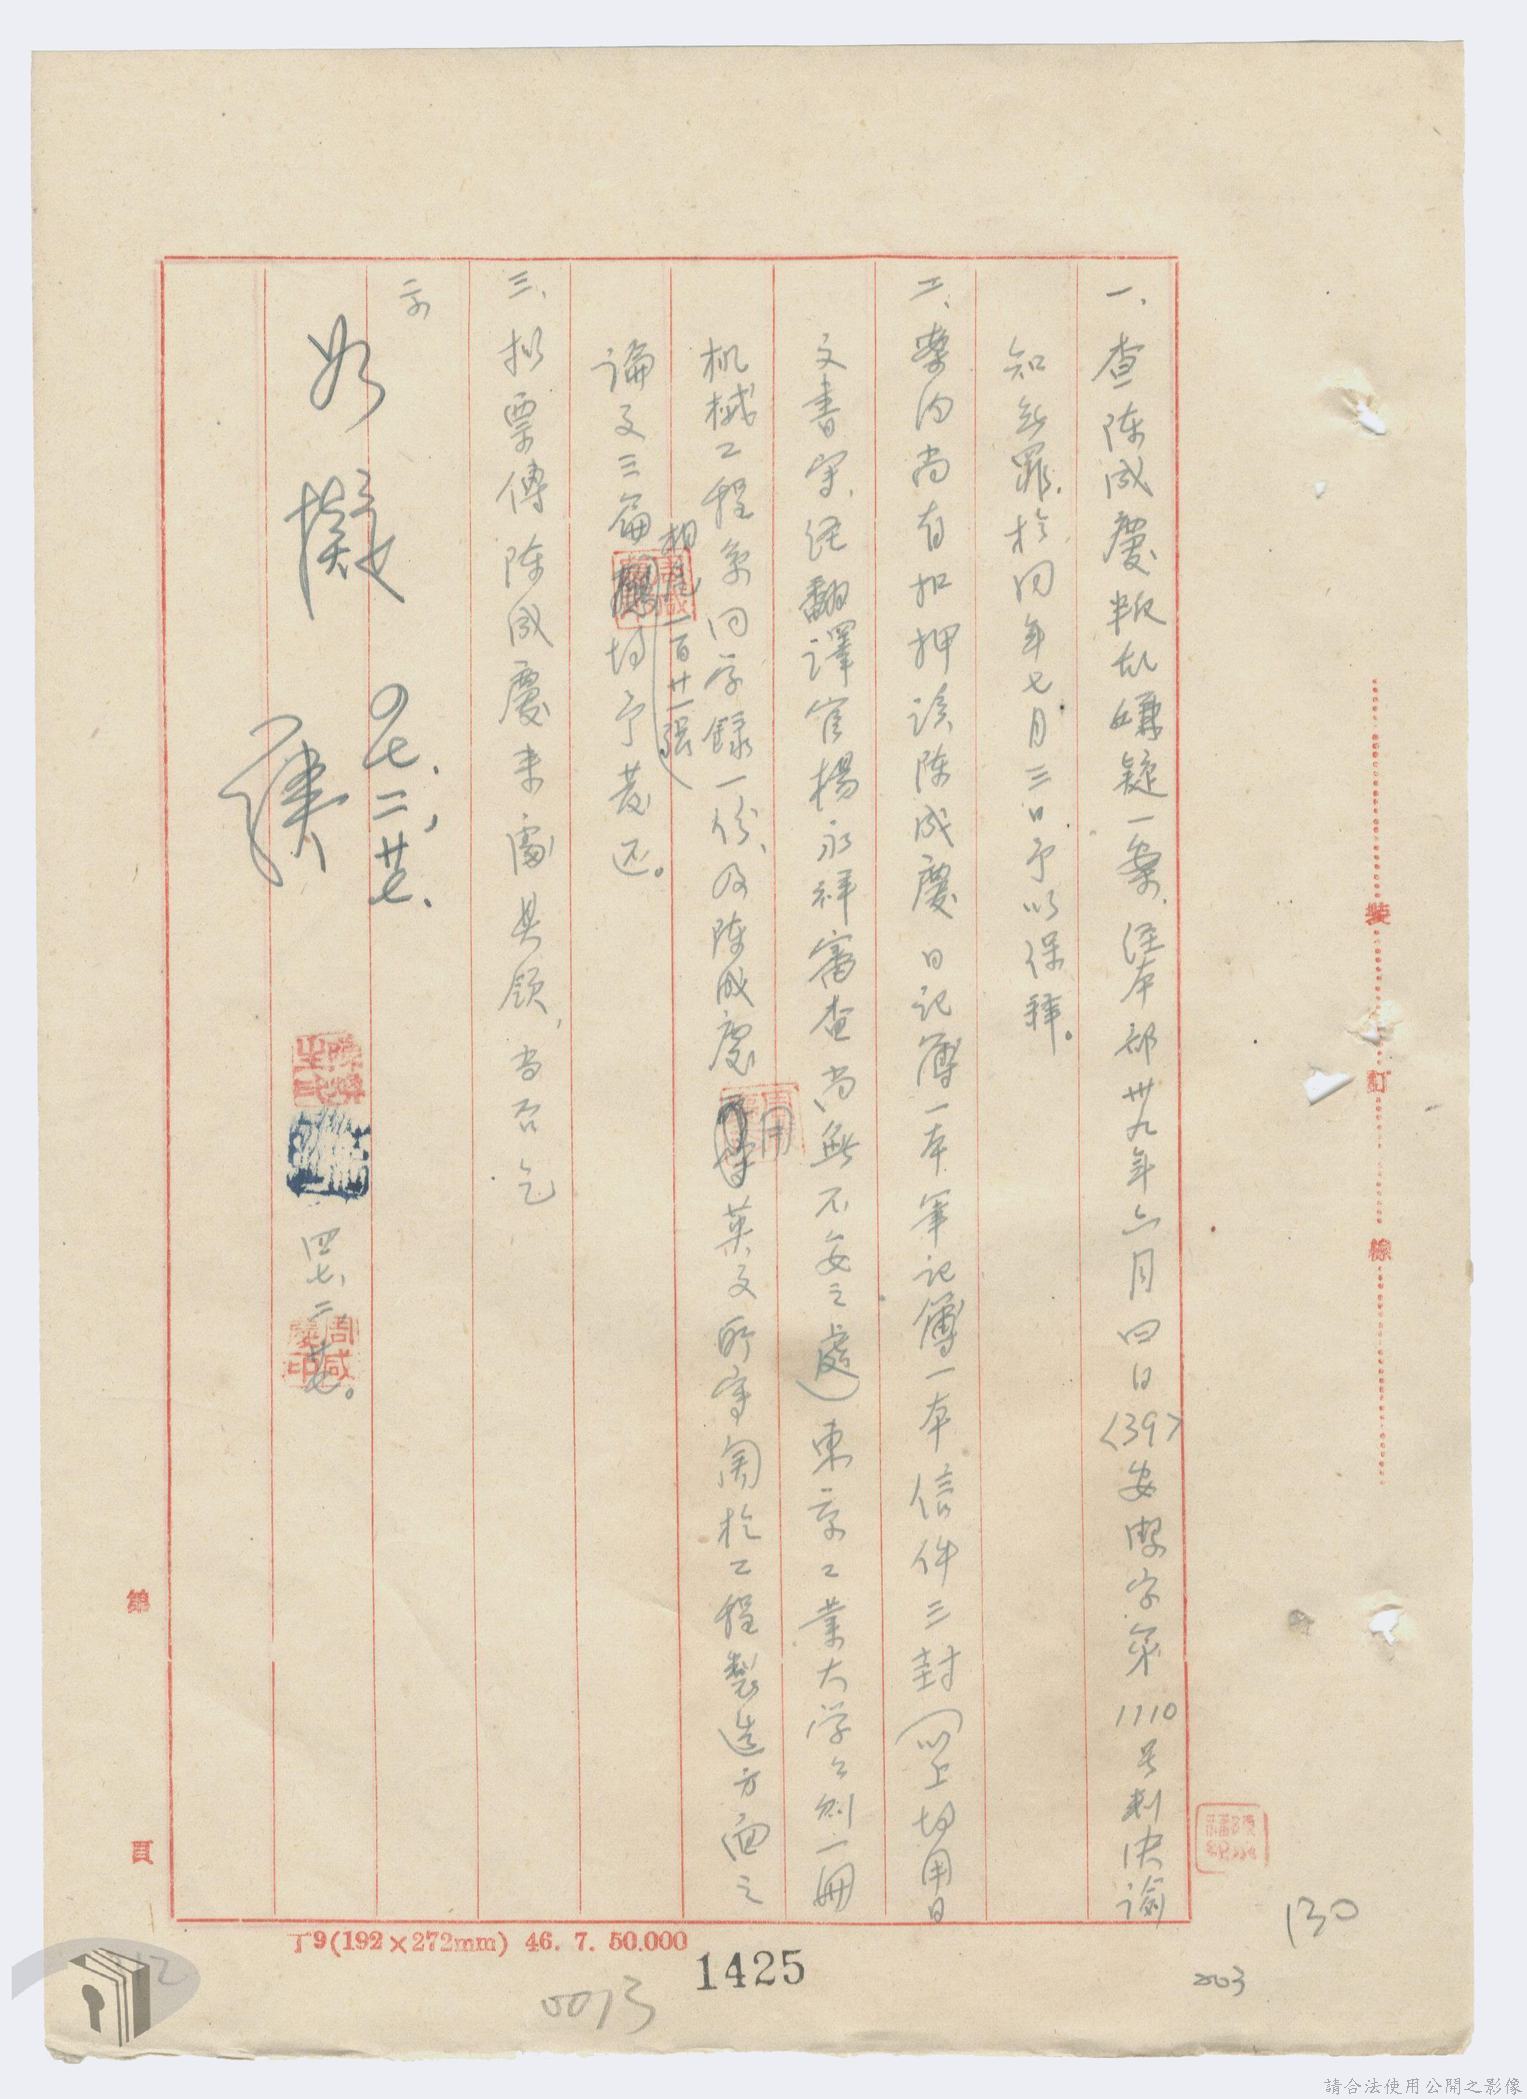 一、查陈成慶叛乱嫌疑一案，經本部卅九年六月四日〈39〉安潔字第1110号判决諭
知無罪，於同年七月三日予以保釋。
二、案内尚有扣押該陈成慶日記簿一本筆記簿一本信件三封（以上均用日
文書写，經翻譯官楊永祥審查尚無不妥之處）東京工業大学学則一冊
机械工程系同学録一份、及陈成慶用英文所写関於工程製造方面之
論文三篇
相片一百廿一張，
均予發还。
三、拟票傳陈成慶来處具領，當否乞
示
如擬
四七、二、廿七、
四七、二、廿七。
裝
訂
線
第
頁
丁9(192×272mm) 46. 7. 50.000
1425
0013
130
請合法使用公開之影像